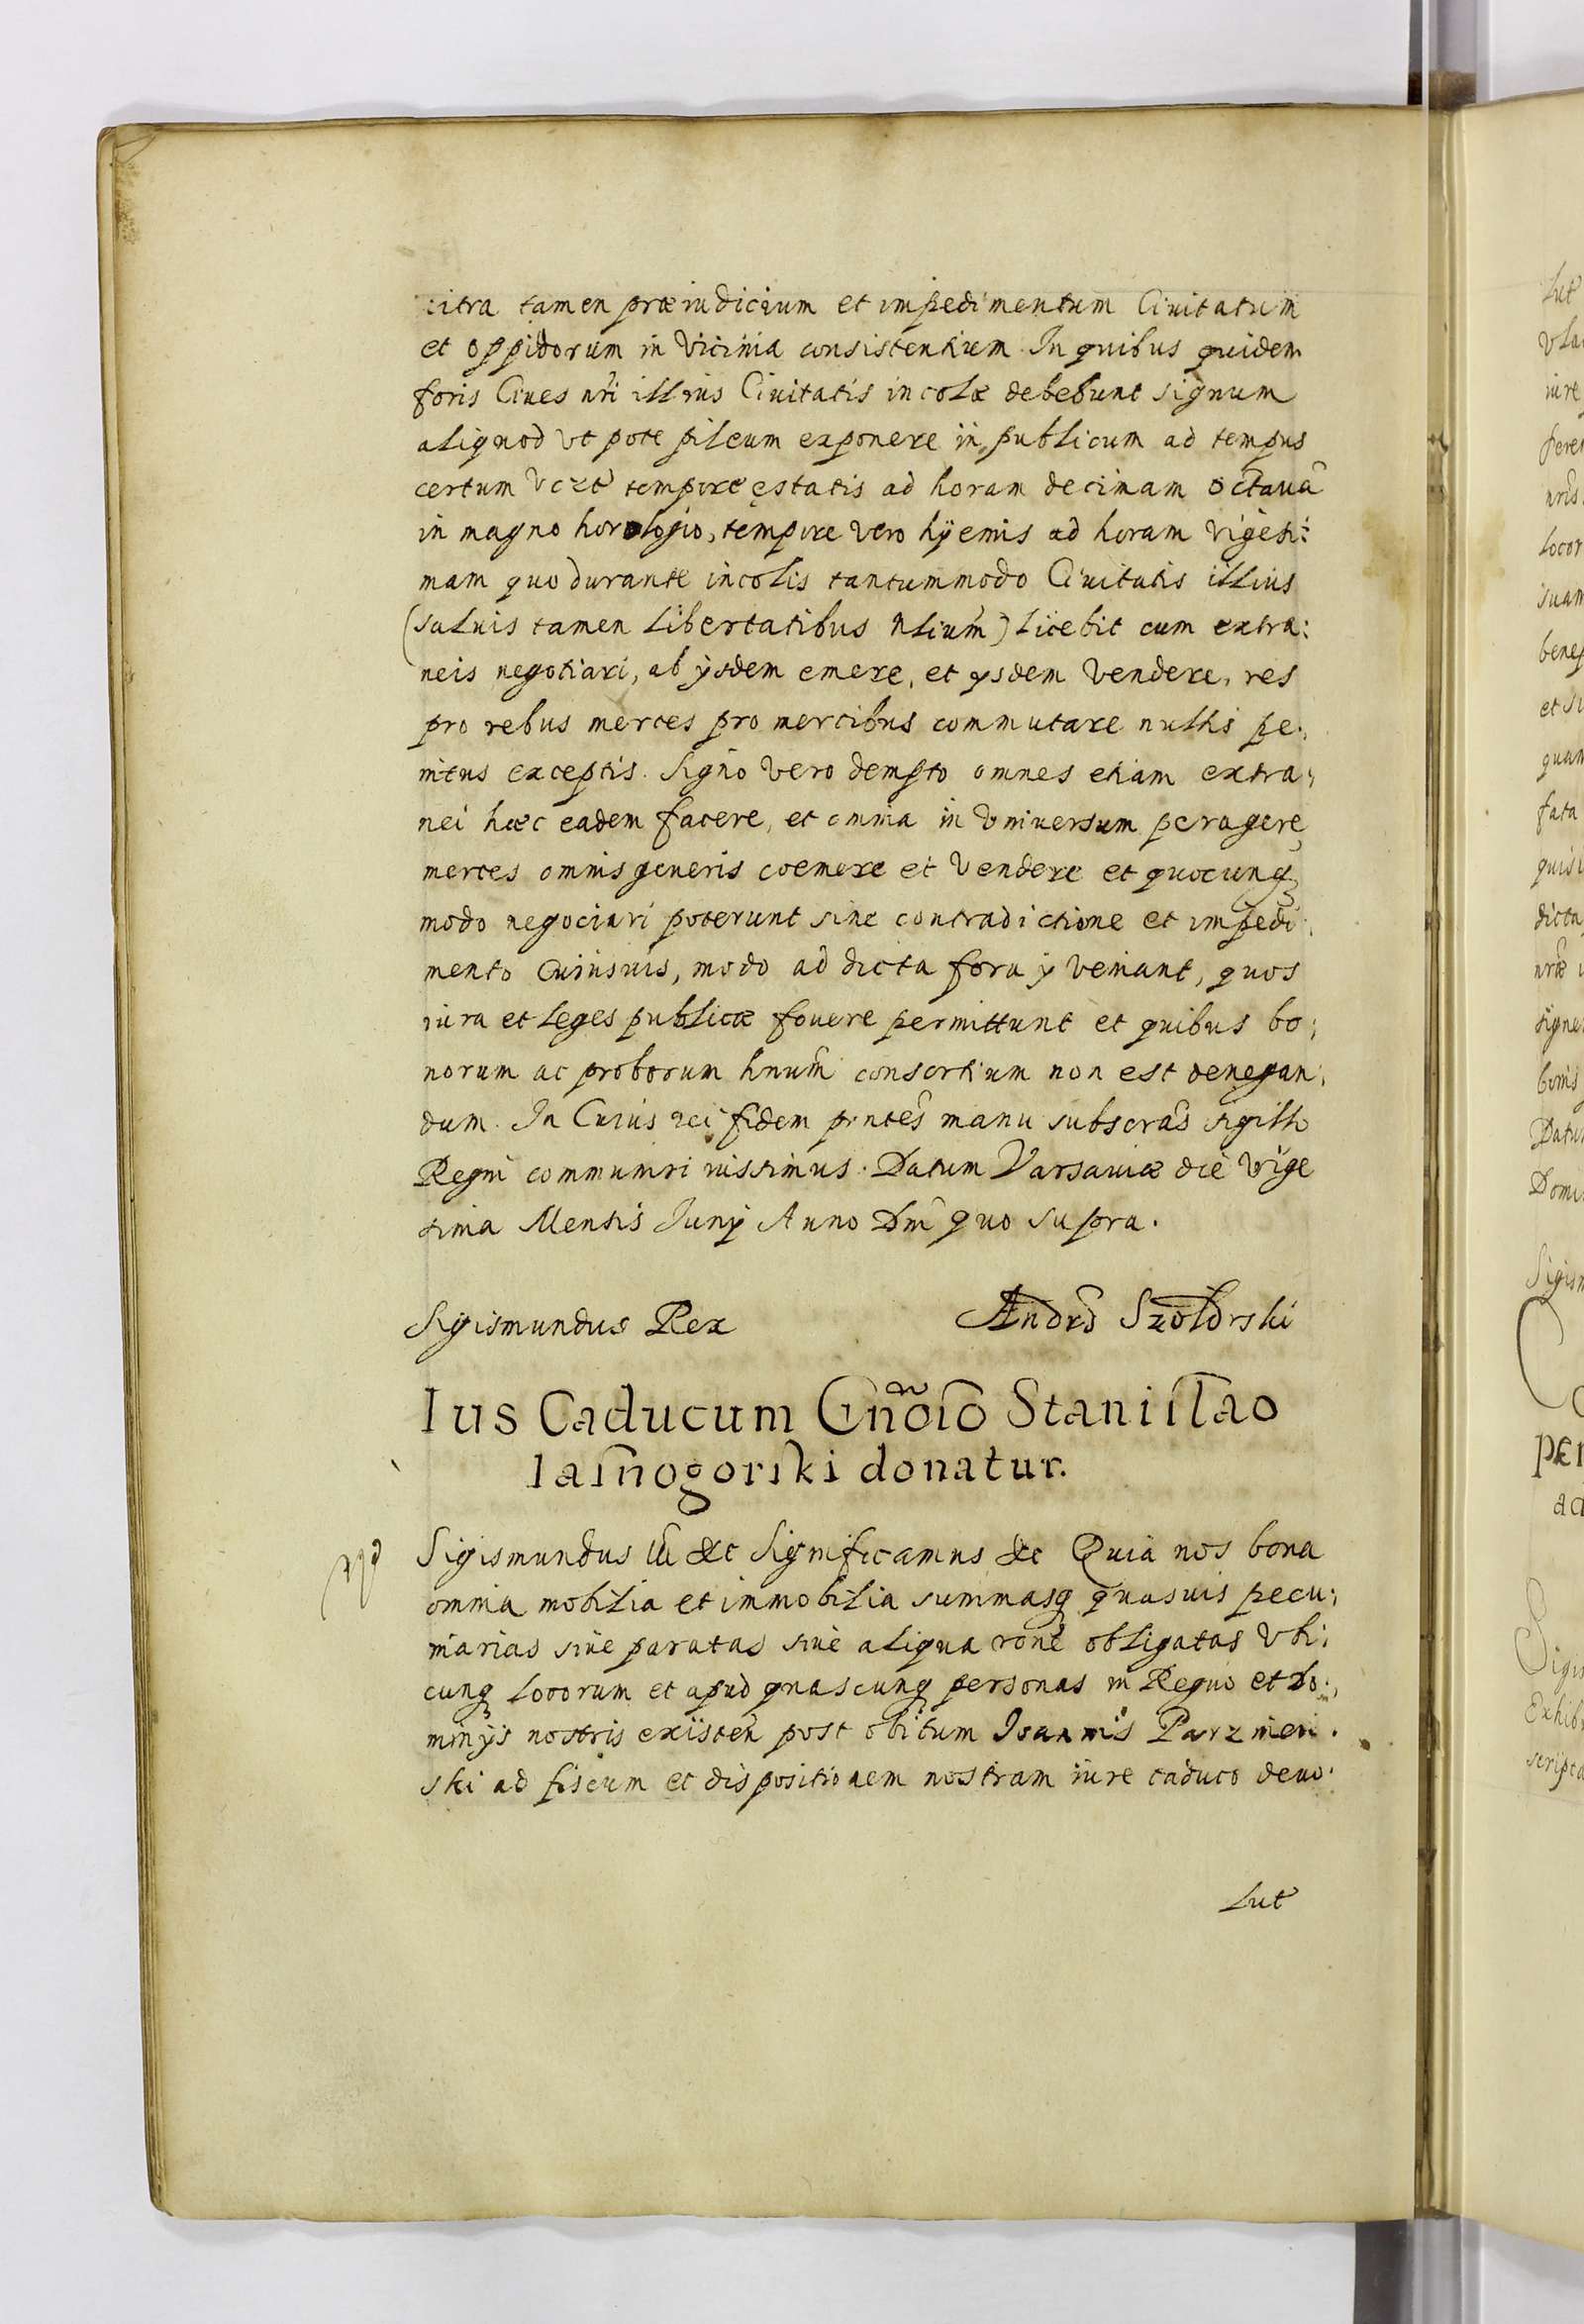 citra tamen præiudicium et impedimentum Ciuitatum
et oppidorum in vicinia consistentium. In quibus quidem
foris Ciues nr̃i illius Ciuitatis incolæ debebunt signum
aliquod vt pote pileum exponere in publicum ad tempus
certum tempore ęstatis ad horam decimam octauã
in magno horologio, tempore vero hÿemis ad horam vigesi:
mam quo durante incolis tantummodo Ciuitatis illius
(saluis tamen libertatibus Nlium̃) licebit cum extra:
neis negotiari, ab ÿsdem emere, et ysdem vendere, res
pro rebus merces pro mercibus commutare nullis pe:
nitus exceptis. Signo vero dempto omnes etiam extra:
nei hæc eadem facere, et omnia in vniversum peragere,
merces omnis generis coemere et vendere et quocunqȝ
modo negociari poterunt sine contradictione et impedi:
mento cuiusuis, modo ad dicta fora ÿ veniant, quos
iura et leges publicæ fouere permittunt et quibus bo:
norum ac proborum hnum̃ consortium non est denegan:
dum. In Cuius rei fidem pñtes manu subscrãs sigillo
Regni communiri iussimus. Datum Varsauiæ die vige
sima Mensis Iunÿ Anno Dñi quo supra.
Sigismundus Rex Andrs Szoldrski
Ius Caducum Gñoso Stanislao
Iasnogorski donatur.
Sigismundus III &c Significamus &c Quia nos bona
omnia mobilia et immobilia summasqȝ quasuis pecu:
niarias siue paratas siue aliqua rõne obligatas vbi:
cunqȝ locorum et apud quascunqȝ personas in Regno et Do:
minÿs nostris existeñ post obitum Ioannis Parznieu:
ski ad fiscum et dispositionem nostram iure caduco deuo:
Lut